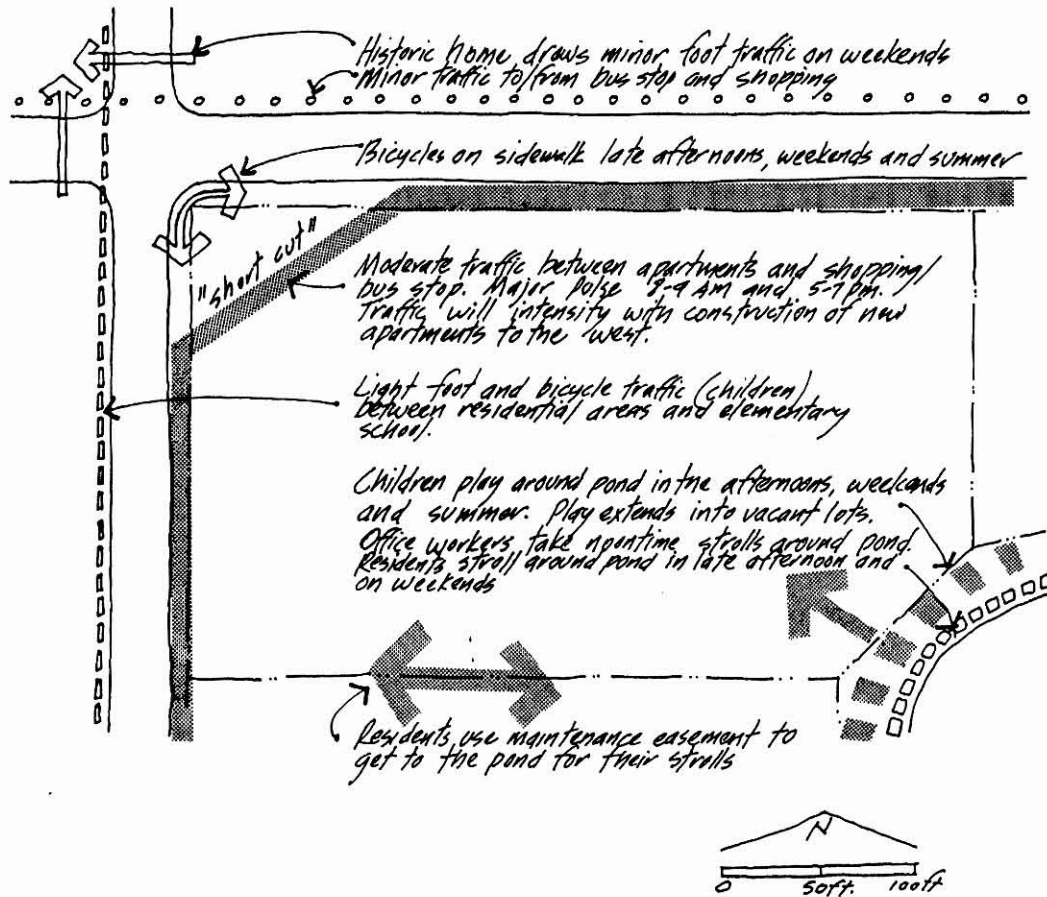 Historic home draws minor foot traffic on weekends
Minor traffic to/from bus stop and shopping
Bicycles on sidewalk late afternoons, weekends and summer
"short cut"
Moderate traffic between apartments and shopping/
bus stop. Major pulse 8-9 Am and 5-7 pm.
Traffic will intensity with construction of new
apartments to the west.
Light foot and bicycle traffic (children)
between residential areas and elementary
school.
Children play around pond in the afternoons, weekends
and summer. Play extends into vacant lots.
Office workers take noontime strolls around pond.
Residents stroll around pond in late afternoon and
on weekends
Residents use maintenance easement to
get to the pond for their strolls
N
0 50ft. 100ft